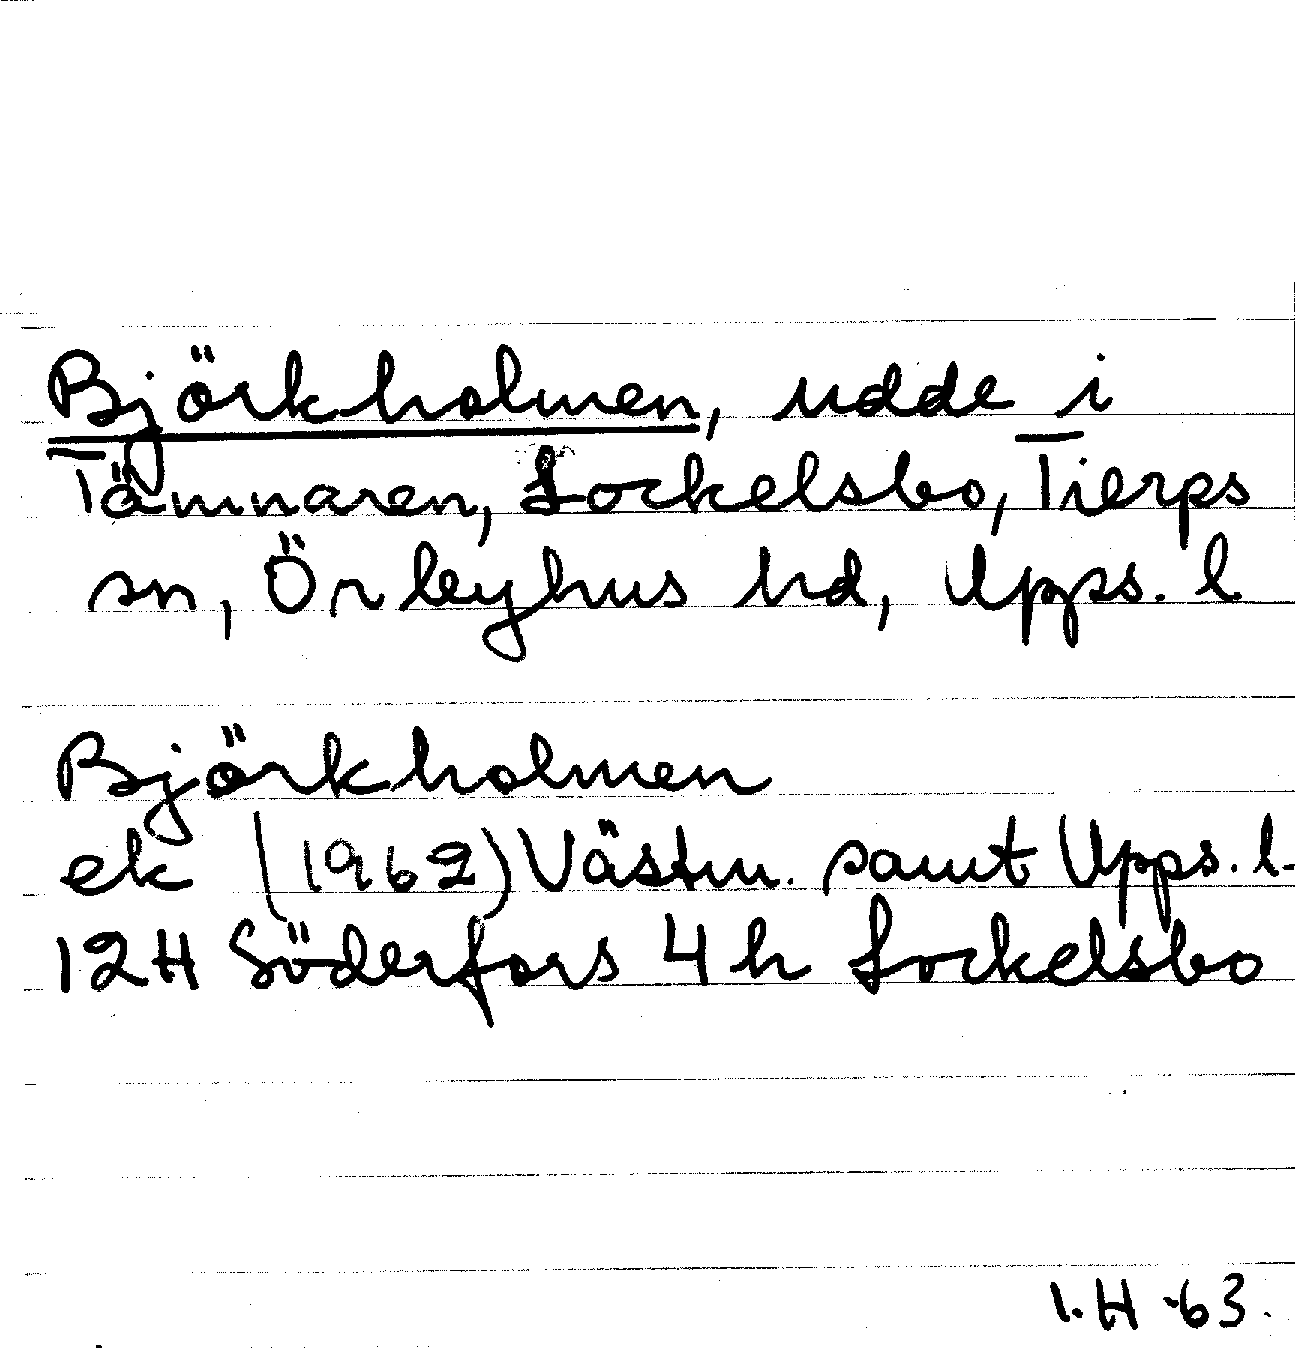 Björkholmen, udde i
Tämnaren, Lockelsbo, Tierps
sn, Örbyhus hd, Upps. l
Björkholmen
ek (1962) Västm. samt Upps. l.
12H Söderfors 4h Lockelsbo
I.H -63.